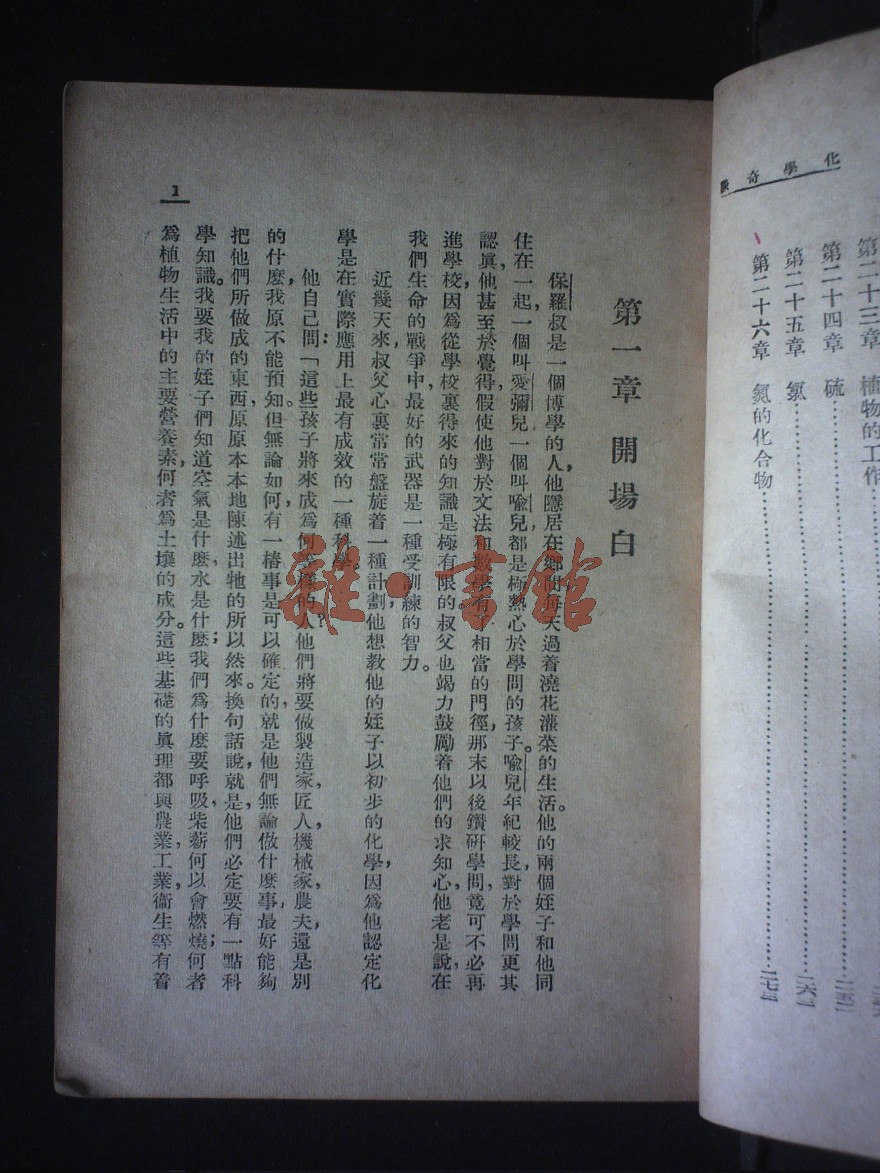 談奇學化
第二十三章 植物的工作
第二十四章 硫
第二十五章 氯
第二十六章 氮的化合物
二七三
1
第一章 開場白
保羅叔是一個博學的人,他隱居在鄉間,每天過着澆花灌菜的生活。他的兩個姪子和他同
住在一起,一個叫愛彌兒,一個叫喻兒,都是極熱心於學問的孩子。喻兒年紀較長,對於學問更其
認眞,他甚至於覺得,假使他對於文法和數學有了相當的門徑,那末以後鑽研學問,竟可不必再
進學校,因爲從學校裏得來的知識是極有限的。叔父也竭力鼓勵着他們的求知心,他老是說,在
我們生命的戰爭中,最好的武器是一種受訓練的智力。
近幾天來,叔父心裏常常盤旋着一種計劃,他想教他的姪子以初步的化學,因爲他認定化
學是在實際應用上最有成效的一種科學。
他自己問:「這些孩子將來成爲何等樣的人?他們將要做製造家,匠人,機械家,農夫,還是別
的什麽,我原不能預知。但無論如何,有一樁事是可以確定的,就是他們無論做什麽事,最好能夠
把他們所做成的東西,原原本本地陳述出牠的所以然來。換句話說,就是,他們必定要有一點科
學知識。我要我的姪子們知道空氣是什麽,水是什麽;我們爲什麽要呼吸,柴薪何以會燃燒;何者
爲植物生活中的主要營養素,何者爲土壤的成分。這些基礎的眞理都與農業,工業,衞生等有着
雜·書館